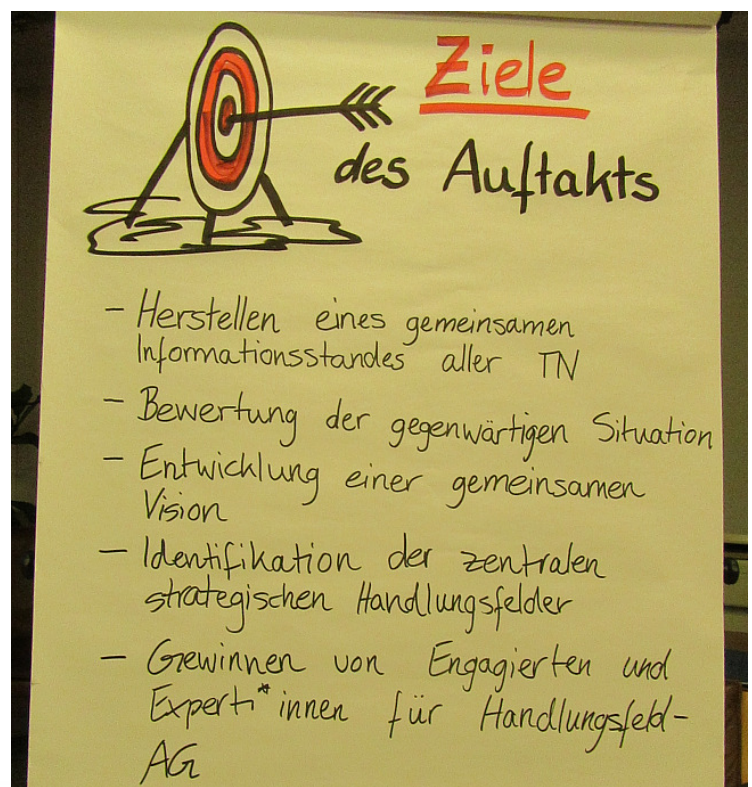 Ziele
des Auftakts
- Herstellen eines gemeinsamen
Informationsstandes aller TN
- Bewertung der gegenwärtigen Situation
- Entwicklung einer gemeinsamen
Vision
- Identifikation der zentralen
strategischen Handlungsfelder
- Gewinnen von Engagierten und
Experti*innen für Handlungsfeld-
AG